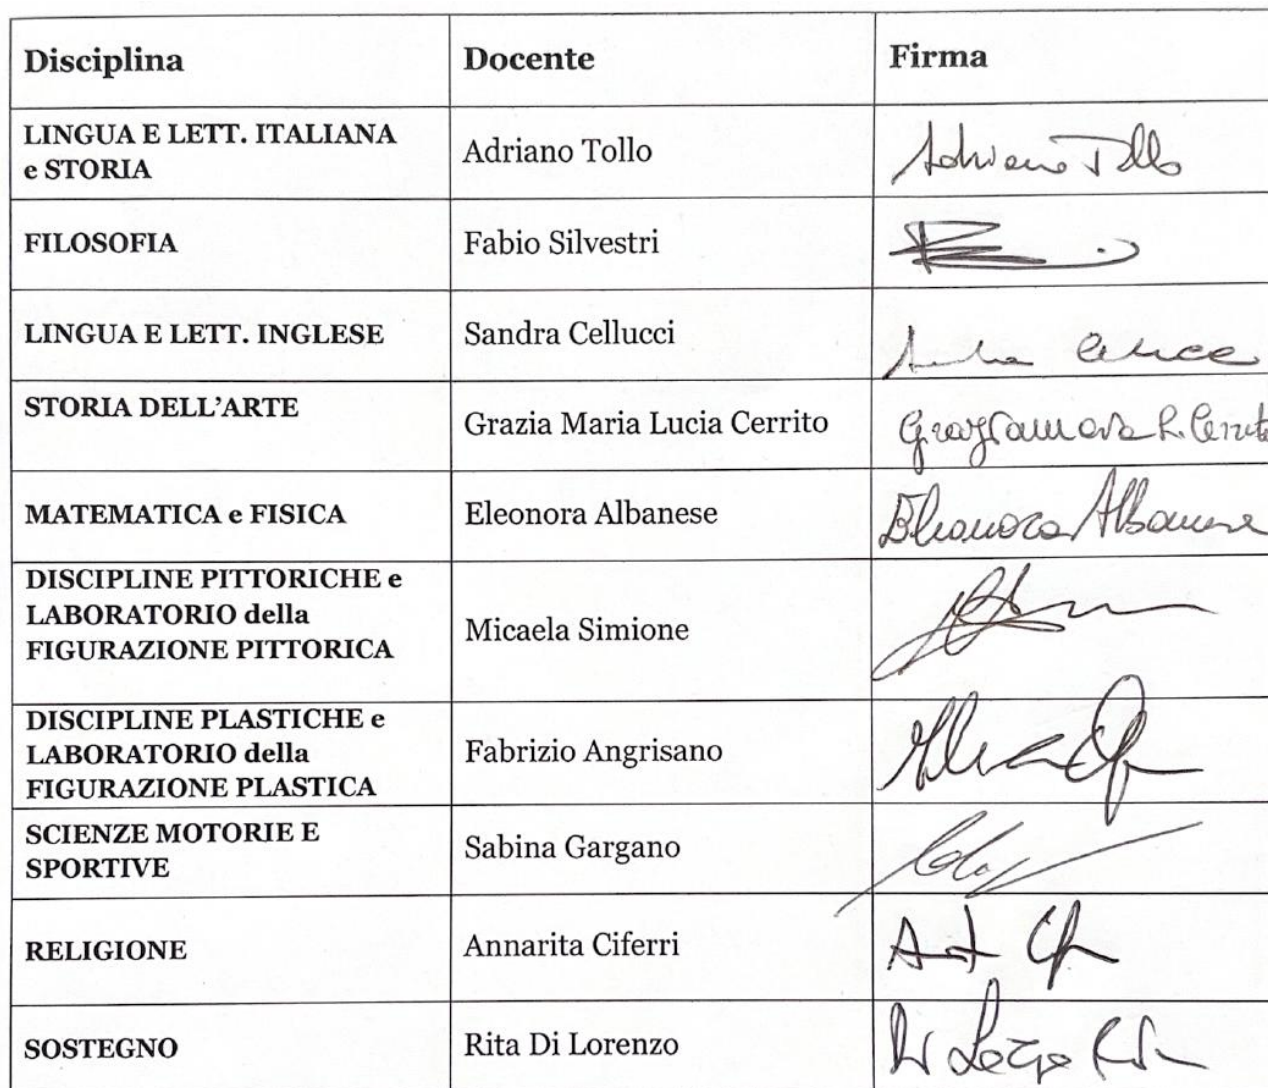 Disciplina Docente Firma
LINGUA E LETT. ITALIANA
e STORIA
Adriano Tollo Adriano Tollo
FILOSOFIA Fabio Silvestri
LINGUA E LETT. INGLESE Sandra Cellucci
STORIA DELL'ARTE
Grazia Maria Lucia Cerrito Graziamaria L. Cerrito
MATEMATICA e FISICA Eleonora Albanese Eleonora Albanese
DISCIPLINE PITTORICHE e
LABORATORIO della
FIGURAZIONE PITTORICA
Micaela Simione
DISCIPLINE PLASTICHE e
LABORATORIO della
FIGURAZIONE PLASTICA
Fabrizio Angrisano
SCIENZE MOTORIE E
SPORTIVE
Sabina Gargano
RELIGIONE Annarita Ciferri
SOSTEGNO Rita Di Lorenzo